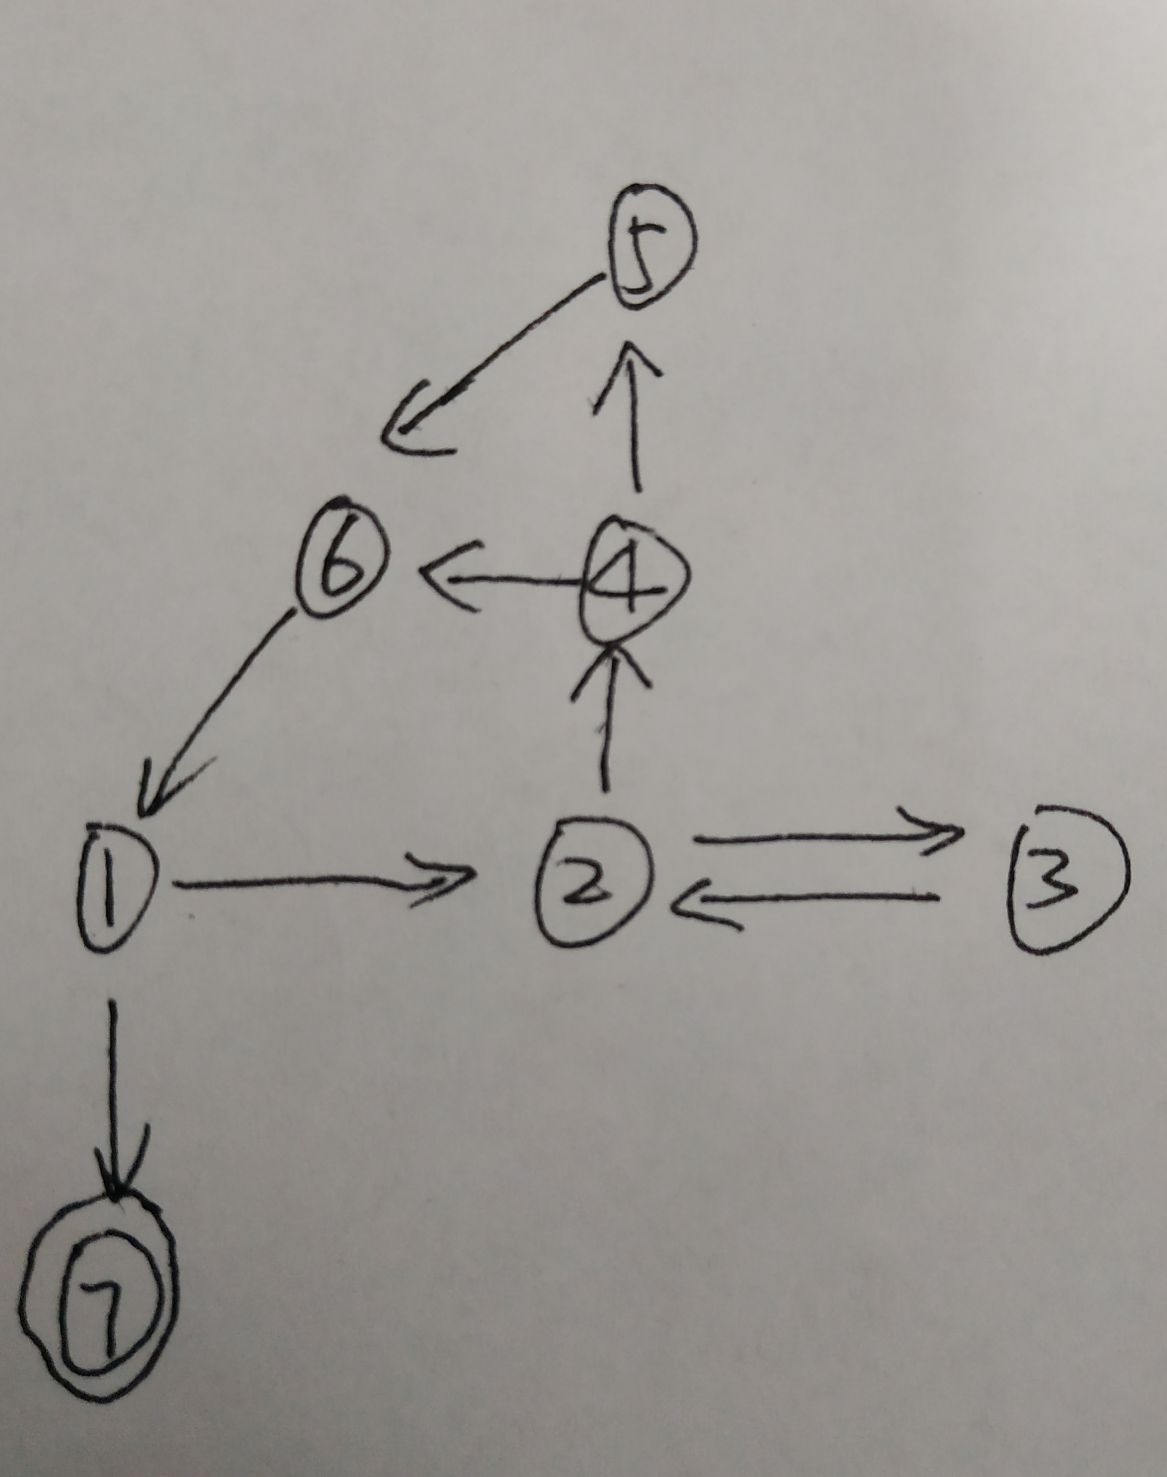 5
6 4
1 2 3
7